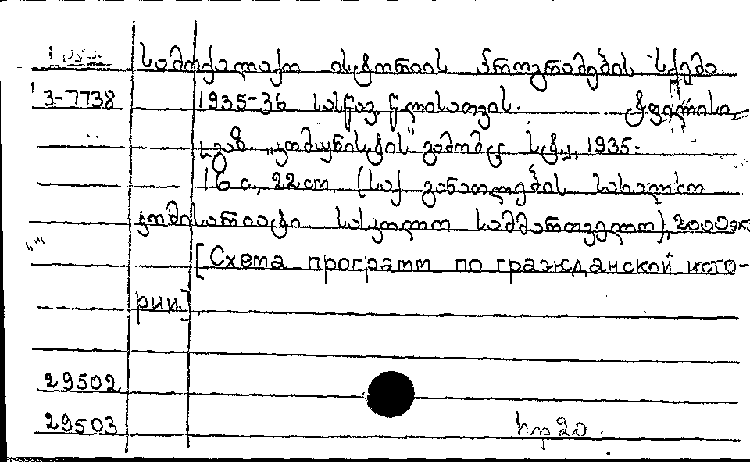 სამოქალაქო ისტორიის პროგრამების სქემა
3-7738 1935-36 სასწავ. წლისათვის. ტფილისი,
გაზ. „კომუნისტის" გამომც. სტ., 1935.
16 გ., 22 cm (საქ. განათლების სახალხო
კომისარიატი. სასკოლო სამმართველო), 2000
[Схема программ по гражданской исто-
рии].
29502
29503 20.